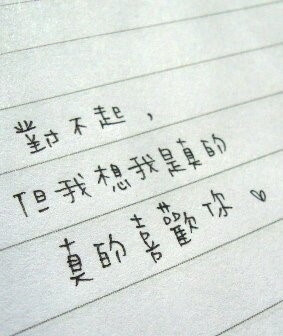 對不起，
但我想我是真的
真的喜歡你♡